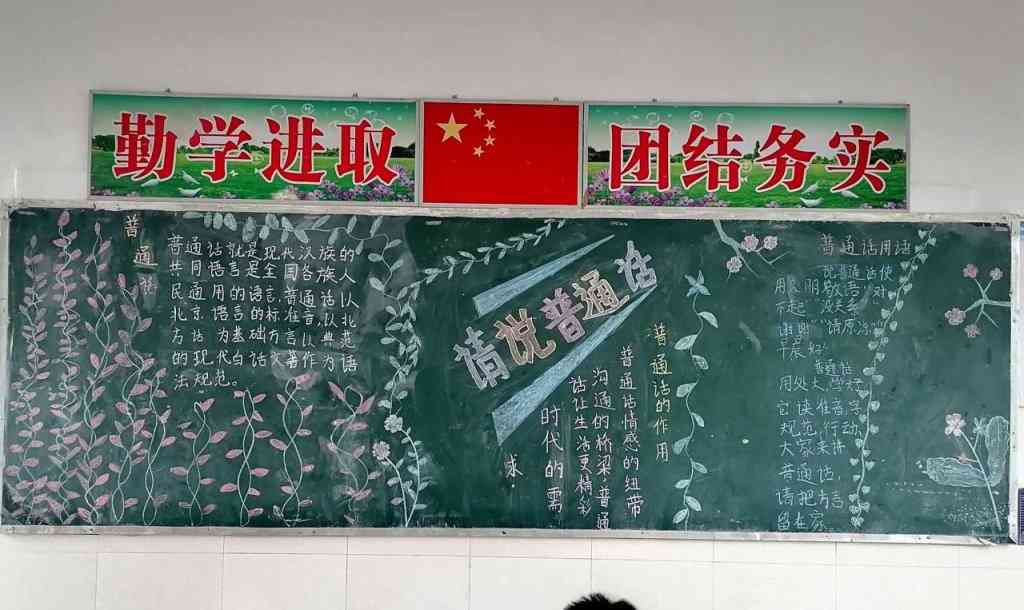 勤学进取
团结务实
普通话
普通话就是现代汉族的
共同语言是全国各族人
民通用的语言,普通话以
北京语言的标准音,以北
方话为基础方言,以典范
的现代白话文著作为语
法规范。
请说普通话
普通话的作用
普通话情感的纽带
沟通的桥梁,普通
话让生活更精彩
时代的需
求
普通话用语
说普通话使
敬语"对
不起""没关系"
"请原谅"
早晨好
普通话
用处大,学好
它读准音字
规范行动,
大家来讲
普通话,
请把方言
留在家.